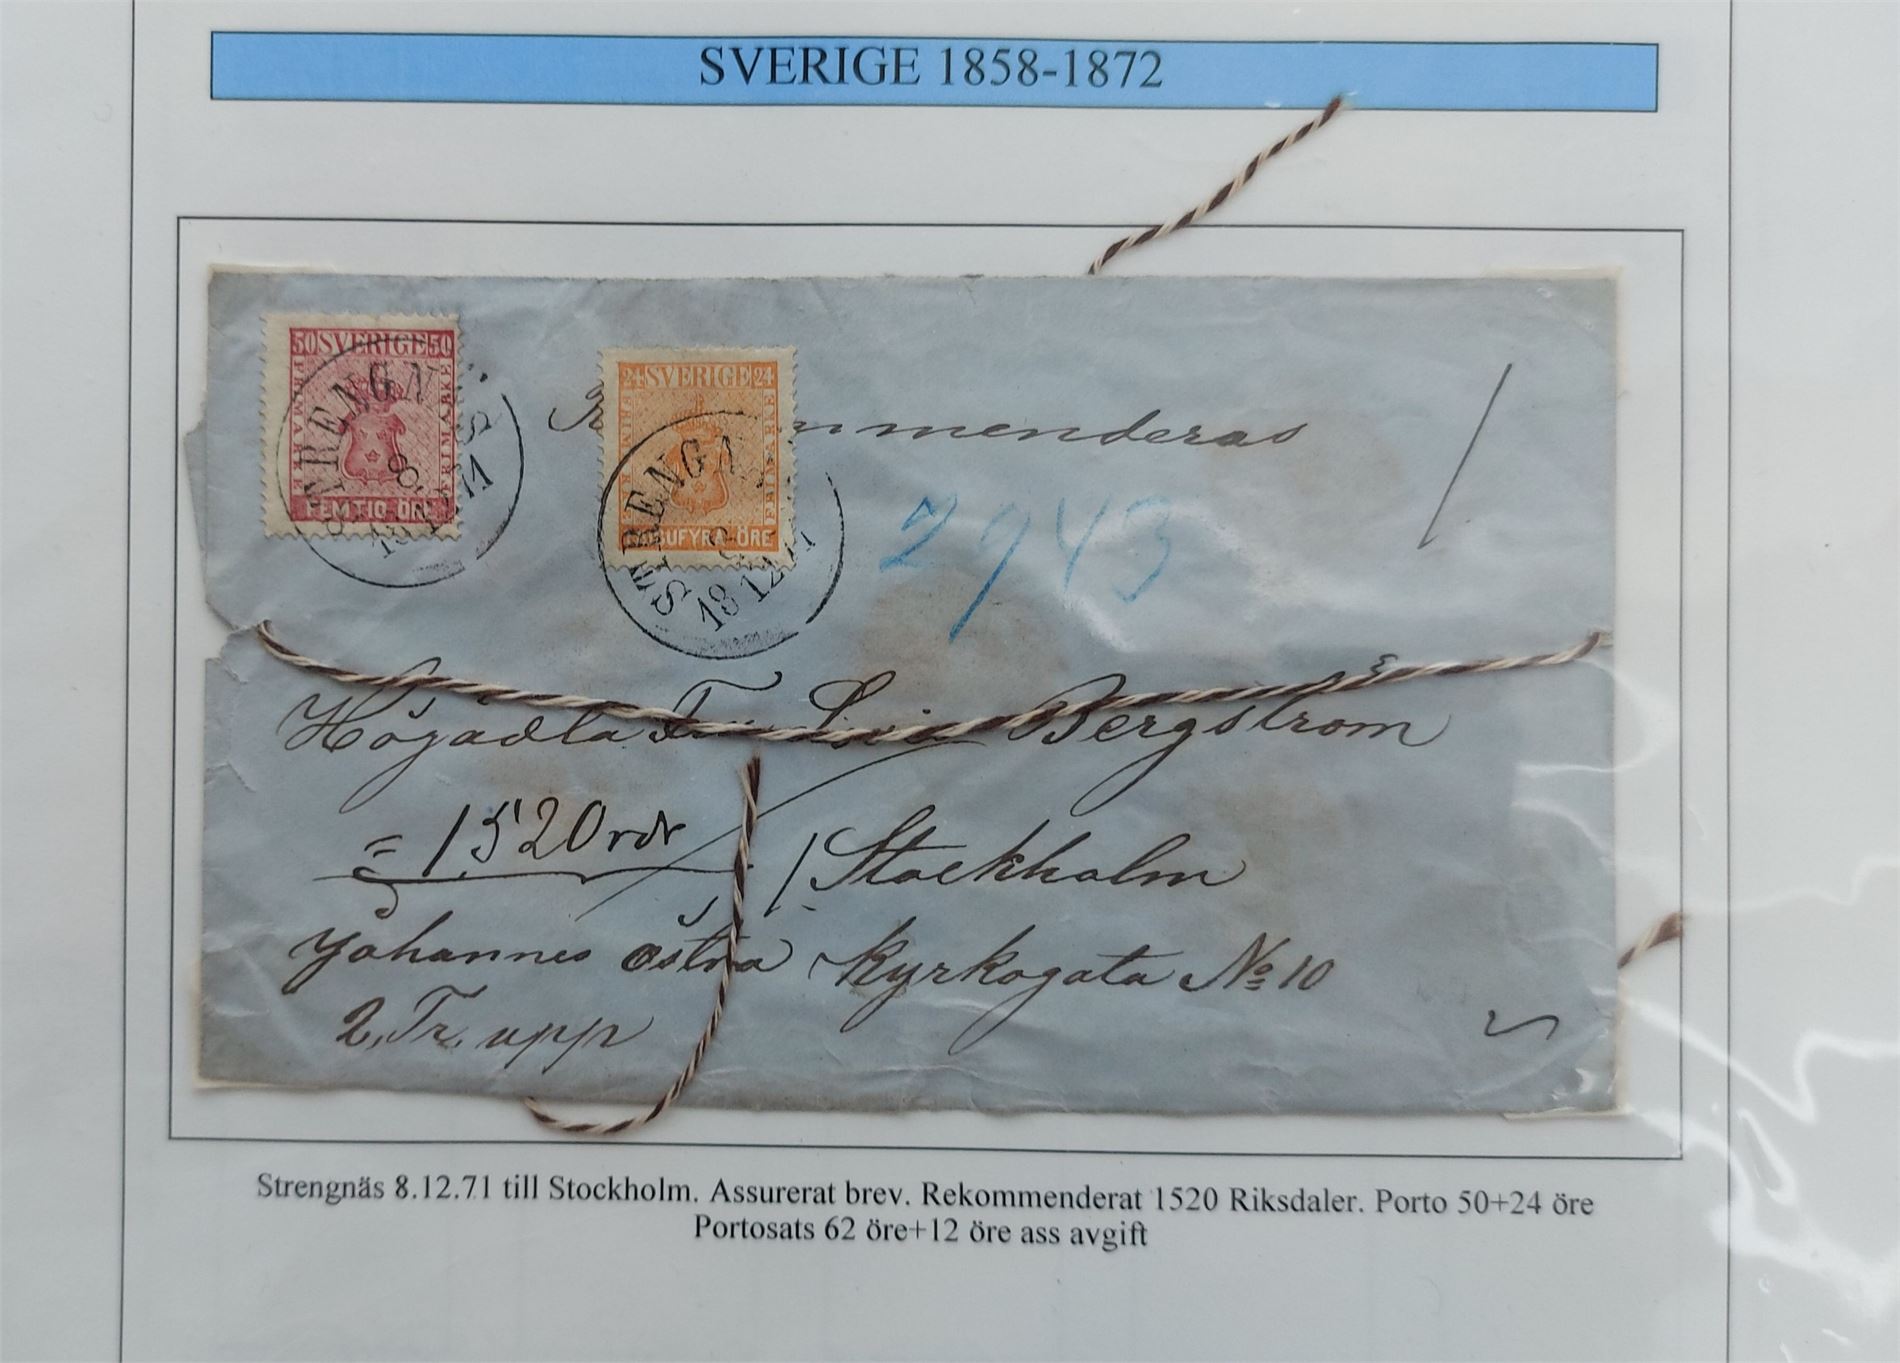 SVERIGE 1858-1872
50 SVERIGE 50
FRIMÄRKE
FRIMÄRKE
FEMTIO ÖRE
STRENGNÄS
8
1871
24 SVERIGE 24
FRIMÄRKE
FRIMÄRKE
TJUGUFYRA ÖRE
STRENGNÄS
8
12
1871
Rekommenderas
2943
Högädla Fru Lovisa Bergström
= 1520 rdr
/ Stockholm
Johannes östra Kyrkogata No 10
2, Tr. upp
Strengnäs 8.12.71 till Stockholm. Assurerat brev. Rekommenderat 1520 Riksdaler. Porto 50+24 öre
Portosats 62 öre+12 öre ass avgift